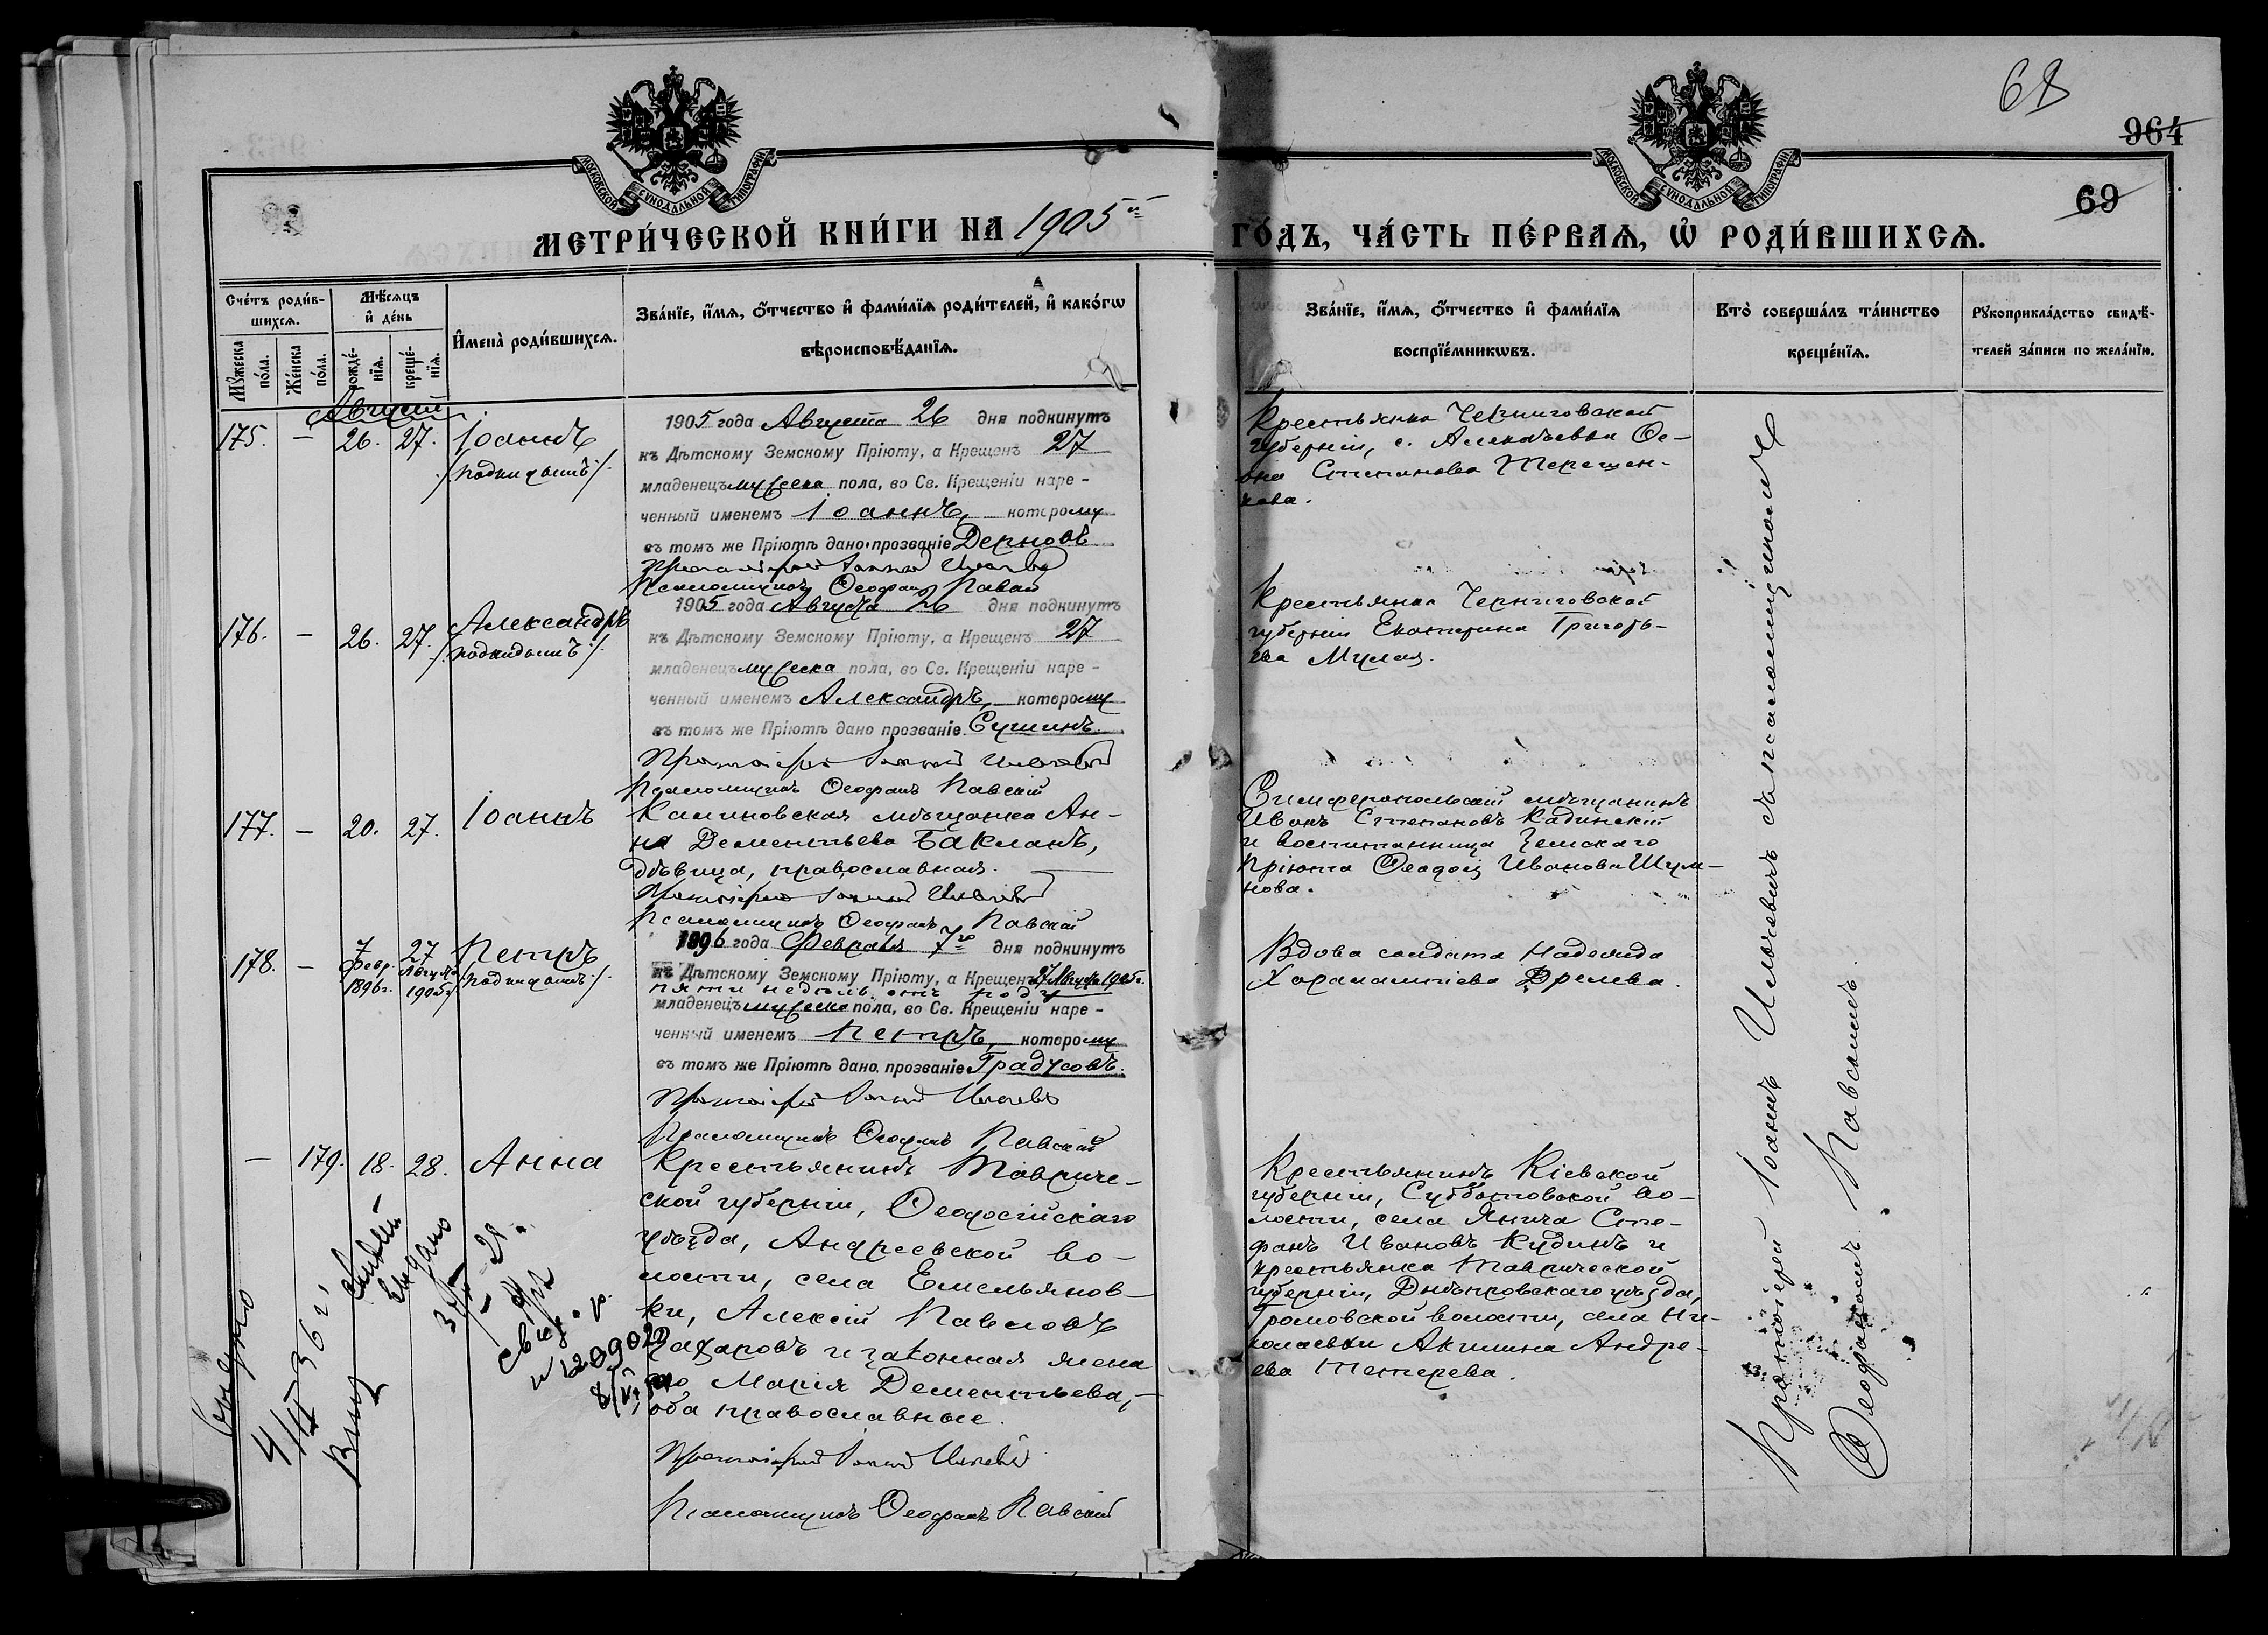 68
964
69
МОСКОВСКОЙ СѴНОДАЛЬНОЙ ТИПОГРАФІИ
МОСКОВСКОЙ СѴНОДАЛЬНОЙ ТИПОГРАФІИ
МЕТРИ́ЧЕСКОЙ КНИ́ГИ НА 1905й
ГО́ДЪ, ЧА́СТЬ ПЕ́РВАѦ, Ѡ҆ РОДИ́ВШИХСѦ.
Сче́тъ роди́в-
шихсѧ.
Мꙋ́жеска
по́ла.
Же́нска
по́ла.
Мѣ́сѧцъ
и҆ де́нь
рожде́-
нїѧ.
креще́-
нїѧ.
И҆мена̀ роди́вшихсѧ.
Зва́нїе, и҆́мѧ, ѻ҆́тчество и҆ фами́лїѧ роди́телей, и҆ како́гѡ
вѣроисповѣ́данїѧ.
Зва́нїе, и҆́мѧ, ѻ҆́тчество и҆ фами́лїѧ
воспрїе́мникѡвъ.
Кто̀ соверша́лъ та́инство
креще́нїѧ.
Рꙋкоприкла́дство свидѣ́-
телей за́писи по жела́нїю.
Августъ
175. — 26. 27. Іоаннъ
/подкидышъ/.
1905 года Августа 26 дня подкинутъ
къ Дѣтскому Земскому Пріюту, а Крещенъ 27
младенецъ мужеска пола, во Св. Крещеніи наре-
ченный именемъ Іоаннъ, которому
въ томъ же Пріютѣ дано прозваніе Дерновъ
Протоіерей Іоаннъ
Псаломщикъ Ѳеофанъ Павскій
Крестьянка Черниговской
губерніи, с. Алексѣевки Ѳе-
Степанова Терещен-
кова.
176. — 26. 27. Александръ
/подкидышъ/.
1905 года Августа 26 дня подкинутъ
къ Дѣтскому Земскому Пріюту, а Крещенъ 27
младенецъ мужеска пола, во Св. Крещеніи наре-
ченный именемъ Александръ, которому
въ томъ же Пріютѣ дано прозваніе Сушинъ.
Протоіерей Іоаннъ
Псаломщикъ Ѳеофанъ Павскій
Крестьянка Черниговской
губерніи Екатерина Григорь-
ева
177. — 20. 27. Іоаннъ
Калиновская мѣщанка Ан-
на Дементьева Бакланъ,
дѣвица, православная.
Протоіерей Іоаннъ
Псаломщикъ Ѳеофанъ Павскій
Симферопольскій мѣщанинъ
Иванъ Степановъ Кадинскій
и воспитанница Земскаго
Пріюта Ѳеодосія Иванова Шум-
нова.
178. — 7 Февр. 1896 г. 27 Августа 1905 г. Петръ
/подкидышъ/.
1896 года Февраля 7го дня подкинутъ
къ Дѣтскому Земскому Пріюту, а Крещенъ 27 Августа 1905 г.
пяти недѣль отъ роду
младенецъ мужеска пола, во Св. Крещеніи наре-
ченный именемъ Петръ, которому
въ томъ же Пріютѣ дано прозваніе Градусовъ.
Протоіерей Іоаннъ
Псаломщикъ Ѳеофанъ Павскій
Вдова солдата Надежда
Харлампіева
— 179. 18. 28. Анна
Крестьянинъ Тавриче-
ской губерніи, Ѳеодосійскаго
уѣзда, Андреевской во-
лости, села Емельянов-
ки, Алексій Павловъ
Захаровъ и законная жена
его Марія Дементьева,
оба православные.
Протоіерей Іоаннъ
Псаломщикъ Ѳеофанъ Павскій
Крестьянинъ Кіевской
губерніи, Субботовской во-
лости, села Янича Сте-
фанъ Ивановъ Кудинъ и
крестьянка Таврической
губерніи, Днѣпровскаго уѣзда,
Громовской волости, села Ни-
колаевки Акилина Андре-
ева Тетерева.
Протоіерей Іоаннъ Ильчевичъ съ псаломщикомъ
Ѳеофаномъ Павскимъ.
выдано